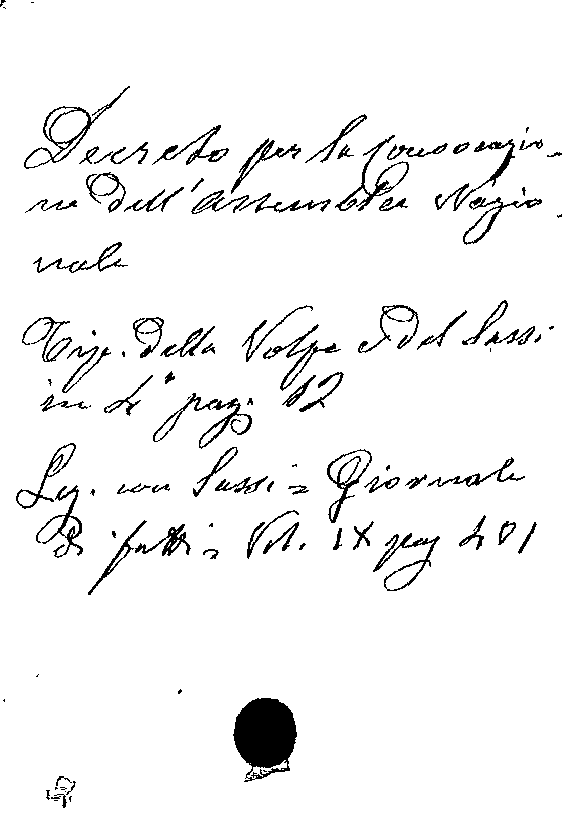 Decreto per la Convocazio-
ne dell'Assemblea Nazio-
nale
Tip. della Volpe e del Sassi
in 4° pag. 12
Leg. con Sassi = Giornale
di fatti = Vol. IX pag 401